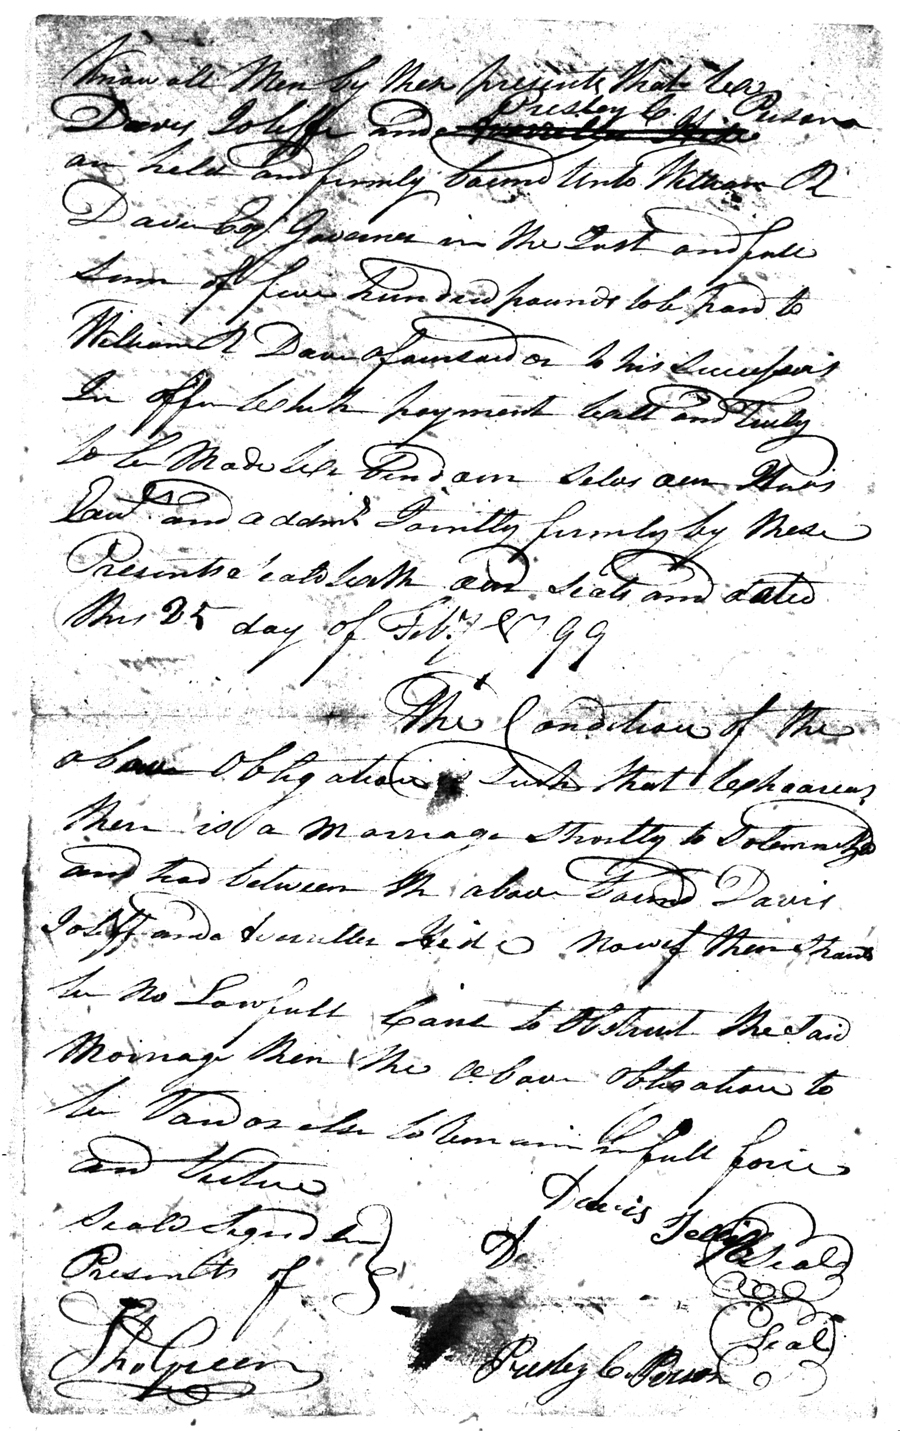 Know all Men by these presents that we
Presley C. Person
Davis Joliffe and
are held and firmly bound unto William R
Davie Esqr Governer in the Just and full
Sum of five hundred pounds to be paid to
William R Davie afoursaid or to his Successors
In office which payment well and truly
to be Made we bind our selvs our Heirs
and admrs Jointly firmly by these
Presents seald with our seals and dated
this 25 day of Feby 1799
The Condition of the
above Obligation is Such that whareas
there is a marriage Shortly to Solemnized
and had between the above bound Davis
Joliff and Hide now if there Shand
be no Lawfull Cause to Obstruct the Said
Marriage then the above obligation to
be Void or else to Remain In full force
and Virtue
Seald Signd in
Presents of
Davis Jolliff Seal
D
Seal
Tho Green
Presley C. Person